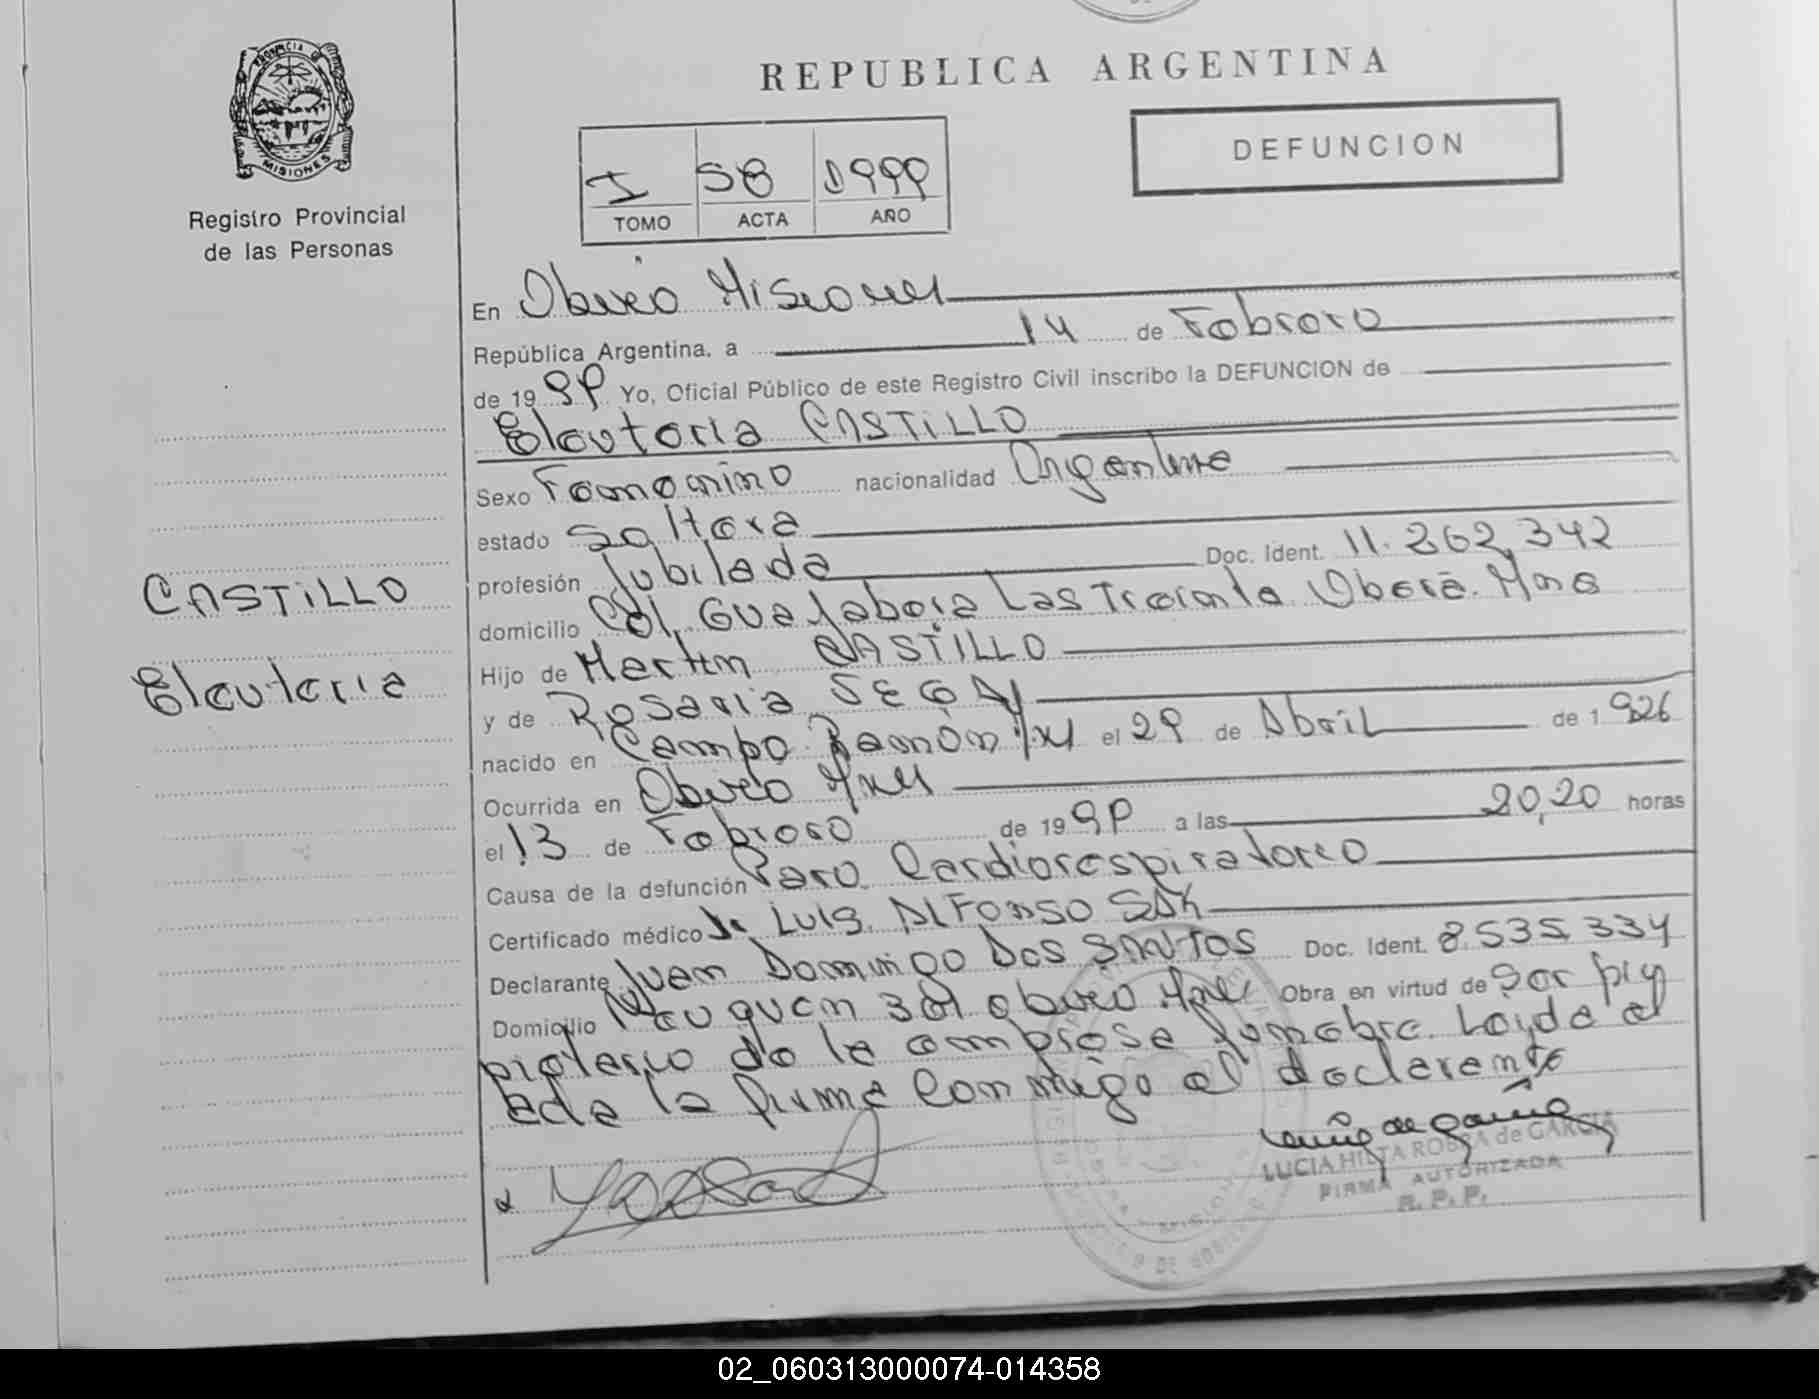 REPUBLICA ARGENTINA
PROVINCIA D
MISIONES
Registro Provincial
de las Personas
DEFUNCION
I 58 1999
TOMO ACTA AÑO
En Oberá Misiones
República Argentina, a 14 de Febrero
de 1999 Yo, Oficial Público de este Registro Civil inscribo la DEFUNCION de
Eleuteria CASTiLLO
Sexo Femenino nacionalidad Argentina
estado Soltera
profesión Jubilada Doc. Ident. 11.262.342
domicilio Col. Guayabera Las Treinta Oberá. Mnes
CASTiLLO
Hijo de Martin CASTiLLO
Eleuteria
y de Rosaria
nacido en Campo Ramón Mnes el 29 de Abril de 1926
Ocurrida en Oberá Mnes
el 13 de Febrero de 1999 a las 20,20 horas
Causa de la defunción Paro Cardiorespiratorio
Certificado médico Luis ALFONSO
Declarante Juan Domingo DOS SANTOS Doc. Ident. 8.535.334
Domicilio Neuquen Oberá Mnes Obra en virtud de Ser
de la empresa funebre. Leída el
acta la firma conmigo el declarante
LUCIA HILTA de GARCIA
FIRMA AUTORIZADA
R. P. P.
02_060313000074-014358